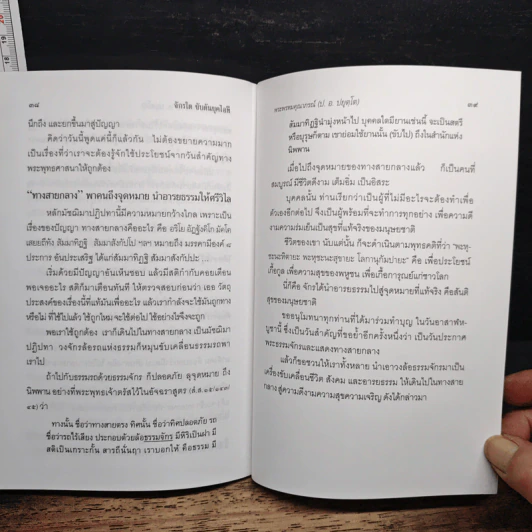 ๓๘ จักรใด ขับดันยุคไอที
นึกถึง และยกขึ้นมาสู่ปัญญา
คิดว่าวันนี้พูดแค่นี้ก็แล้วกัน ไม่ต้องขยายความมาก
เป็นเรื่องที่ว่าเราจะต้องรู้จักใช้ประโยชน์จากวันสำคัญทาง
พระพุทธศาสนาให้ถูกต้อง
“ทางสายกลาง” พาคนถึงจุดหมาย นำอารยธรรมให้ศรีวิไล
หลักมัชฌิมาปฏิปทานี้มีความหมายกว้างไกล เพราะเป็น
เรื่องของปัญญา ทางสายกลางคืออะไร คือ อริโย อัฏฐังคิโก มัคโค
เสยยถีทัง สัมมาทิฏฐิ สัมมาสังกัปโป ฯลฯ หมายถึง มรรคามีองค์ ๘
ประการ อันประเสริฐ ได้แก่ สัมมาทิฏฐิ สัมมาสังกัปปะ ...
เริ่มด้วยมีปัญญาอันเห็นชอบ แล้วมีสติกำกับคอยเตือน
พอเจออะไร สติก็มาเตือนทันที ให้ตรวจสอบก่อนว่า เออ วัตถุ
ประสงค์ของเรื่องนี้ที่แท้มันเพื่ออะไร แล้วเรากำลังจะใช้มันถูกทาง
หรือไม่ ที่ใช้ไปแล้ว ใช้ถูกไหม จะใช้ต่อไป ใช้อย่างไรจึงจะถูก
พอเราใช้ถูกต้อง เราก็เดินไปในทางสายกลาง เป็นมัชฌิมา
ปฏิปทา วงจักรล้อรถแห่งธรรมก็หมุนขับเคลื่อนธรรมรถพา
เราไป
ถ้าไปกับธรรมรถด้วยธรรมจักร ก็ปลอดภัย ลุจุดหมาย ถึง
นิพพาน อย่างที่พระพุทธเจ้าตรัสไว้ในอัจฉราสูตร
ว่า
ทางนั้น ชื่อว่าทางสายตรง ทิศนั้น ชื่อว่าทิศปลอดภัย รถ
ชื่อว่ารถไร้เสียง ประกอบด้วยล้อธรรมจักร มีหิริเป็นฝา มี
สติเป็นเกราะกั้น สารถีนั้นฤๅ เราบอกให้ คือธรรม มี
พระพรหมคุณาภรณ์ (ป. อ. ปยุตฺโต) ๓๙
สัมมาทิฏฐินำมุ่งหน้าไป บุคคลใดมียานเช่นนี้ จะเป็นสตรี
หรือบุรุษก็ตาม เขาย่อมใช้ยานนั้น (ขับไป) ถึงในสำนักแห่ง
นิพพาน
เมื่อไปถึงจุดหมายของทางสายกลางแล้ว ก็เป็นคนที่
สมบูรณ์ มีชีวิตดีงาม เต็มอิ่ม เป็นอิสระ
บุคคลนั้น ท่านเรียกว่าเป็นผู้ที่ไม่มีอะไรจะต้องทำเพื่อ
ตัวเองอีกต่อไป จึงเป็นผู้พร้อมที่จะทำการทุกอย่าง เพื่อความดี
งามความร่มเย็นเป็นสุขที่แท้จริงของมนุษยชาติ
ชีวิตของเขา นับแต่นั้น ก็จะดำเนินตามพุทธคติที่ว่า “พะหุ-
ชะนะหิตายะ พะหุชะนะสุขายะ โลกานุกัมปายะ” คือ เพื่อประโยชน์
เกื้อกูล เพื่อความสุขของพหูชน เพื่อเกื้อการุณย์แก่ชาวโลก
นี่ก็คือ จักรได้นำอารยธรรมไปสู่จุดหมายที่แท้จริง คือสันติ
สุขของมนุษยชาติ
ขออนุโมทนาทุกท่านที่ได้มาร่วมทำบุญ ในวันอาสาฬห-
บูชานี้ ซึ่งเป็นวันสำคัญที่ขอย้ำอีกครั้งหนึ่งว่า เป็นวันประกาศ
พระธรรมจักรและแสดงทางสายกลาง
แล้วก็ขอชวนให้เราทั้งหลาย นำเอาวงล้อธรรมจักรมาเป็น
เครื่องขับเคลื่อนชีวิต สังคม และอารยธรรม ให้เดินไปในทางสาย
กลาง สู่ความดีงามความสุขความเจริญ ดังได้กล่าวมา